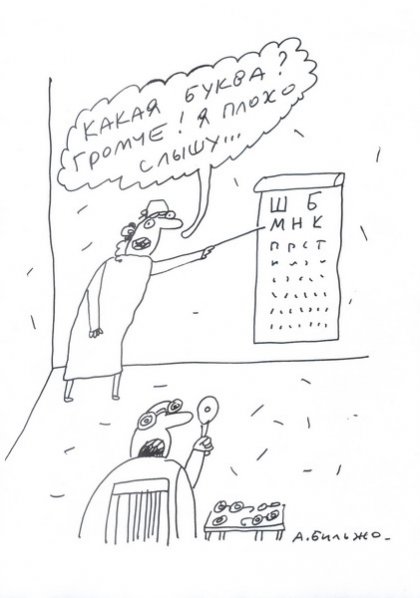 КАКАЯ БУКВА?
ГРОМЧЕ! Я ПЛОХО
СЛЫШУ...
Ш Б
М Н К
П Р С Т
А. БИЛЬЖО